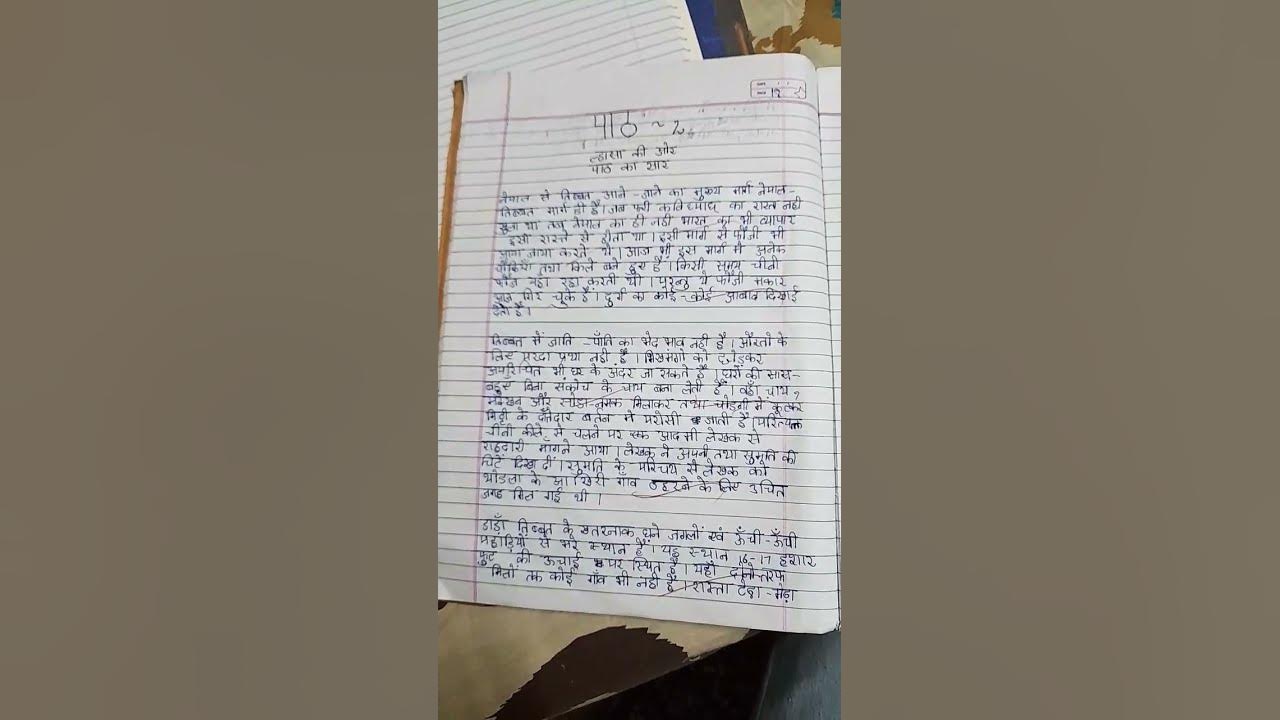 पाठ ~ 2
ल्हासा की ओर
पाठ का सार
नेपाल से तिब्बत आने - जाने का मुख्य मार्ग नेपाल -
तिब्बत मार्ग ही है। जब फरी कलिङपोङ का रास्ता नही
खुला था तब नेपाल का ही नही भारत का भी व्यापार
इसी रास्ते से होता था। इसी मार्ग से फौजी भी
जाया करते थे। आज भी इस मार्ग में अनेक
चौकियाँ तथा किले बने हुए है। किसी समय चीनी
फौज यहाँ रहा करती थी। परन्तु ये फौजी मकान
गिर चुके है। दुर्ग का कोई - कोई आबाद दिखाई
देता है।
तिब्बत में जाति - पाँति का भेद भाव नही है। औरतो के
लिए परदा प्रथा नही है। भिखमंगो को छोड़कर
अपरिचित भी घर के अंदर जा सकते है। घरों की सास -
बहुएँ बिना संकोच के चाय बना लेती है। वहाँ चाय,
मक्खन और सोडा-नमक मिलाकर तथा चोङी में कूटकर
मिट्टी के टोंटीदार बर्तन मे परोसी जाती है। परित्यक्त
चीनी कीले से चलने पर एक आदमी लेखक से
राहदारी माँगने आया। लेखक ने अपनी तथा सुमति की
चिटें दिखा दीं। सुमति के परिचय से लेखक को
थोङला के आखिरी गाँव ठहरने के लिए उचित
जगह मिल गई थी।
डाँडाँ तिब्बत के खतरनाक घने जगलों एवं ऊँची - ऊँची
पहाड़ियों से भरे स्थान है। यह स्थान 16-17 हजार
फुट की ऊचाई पर स्थित है। यहाँ दोनो तरफ
मिलों तक कोई गाँव भी नही है। रास्ता टेढ़ा - मेढ़ा